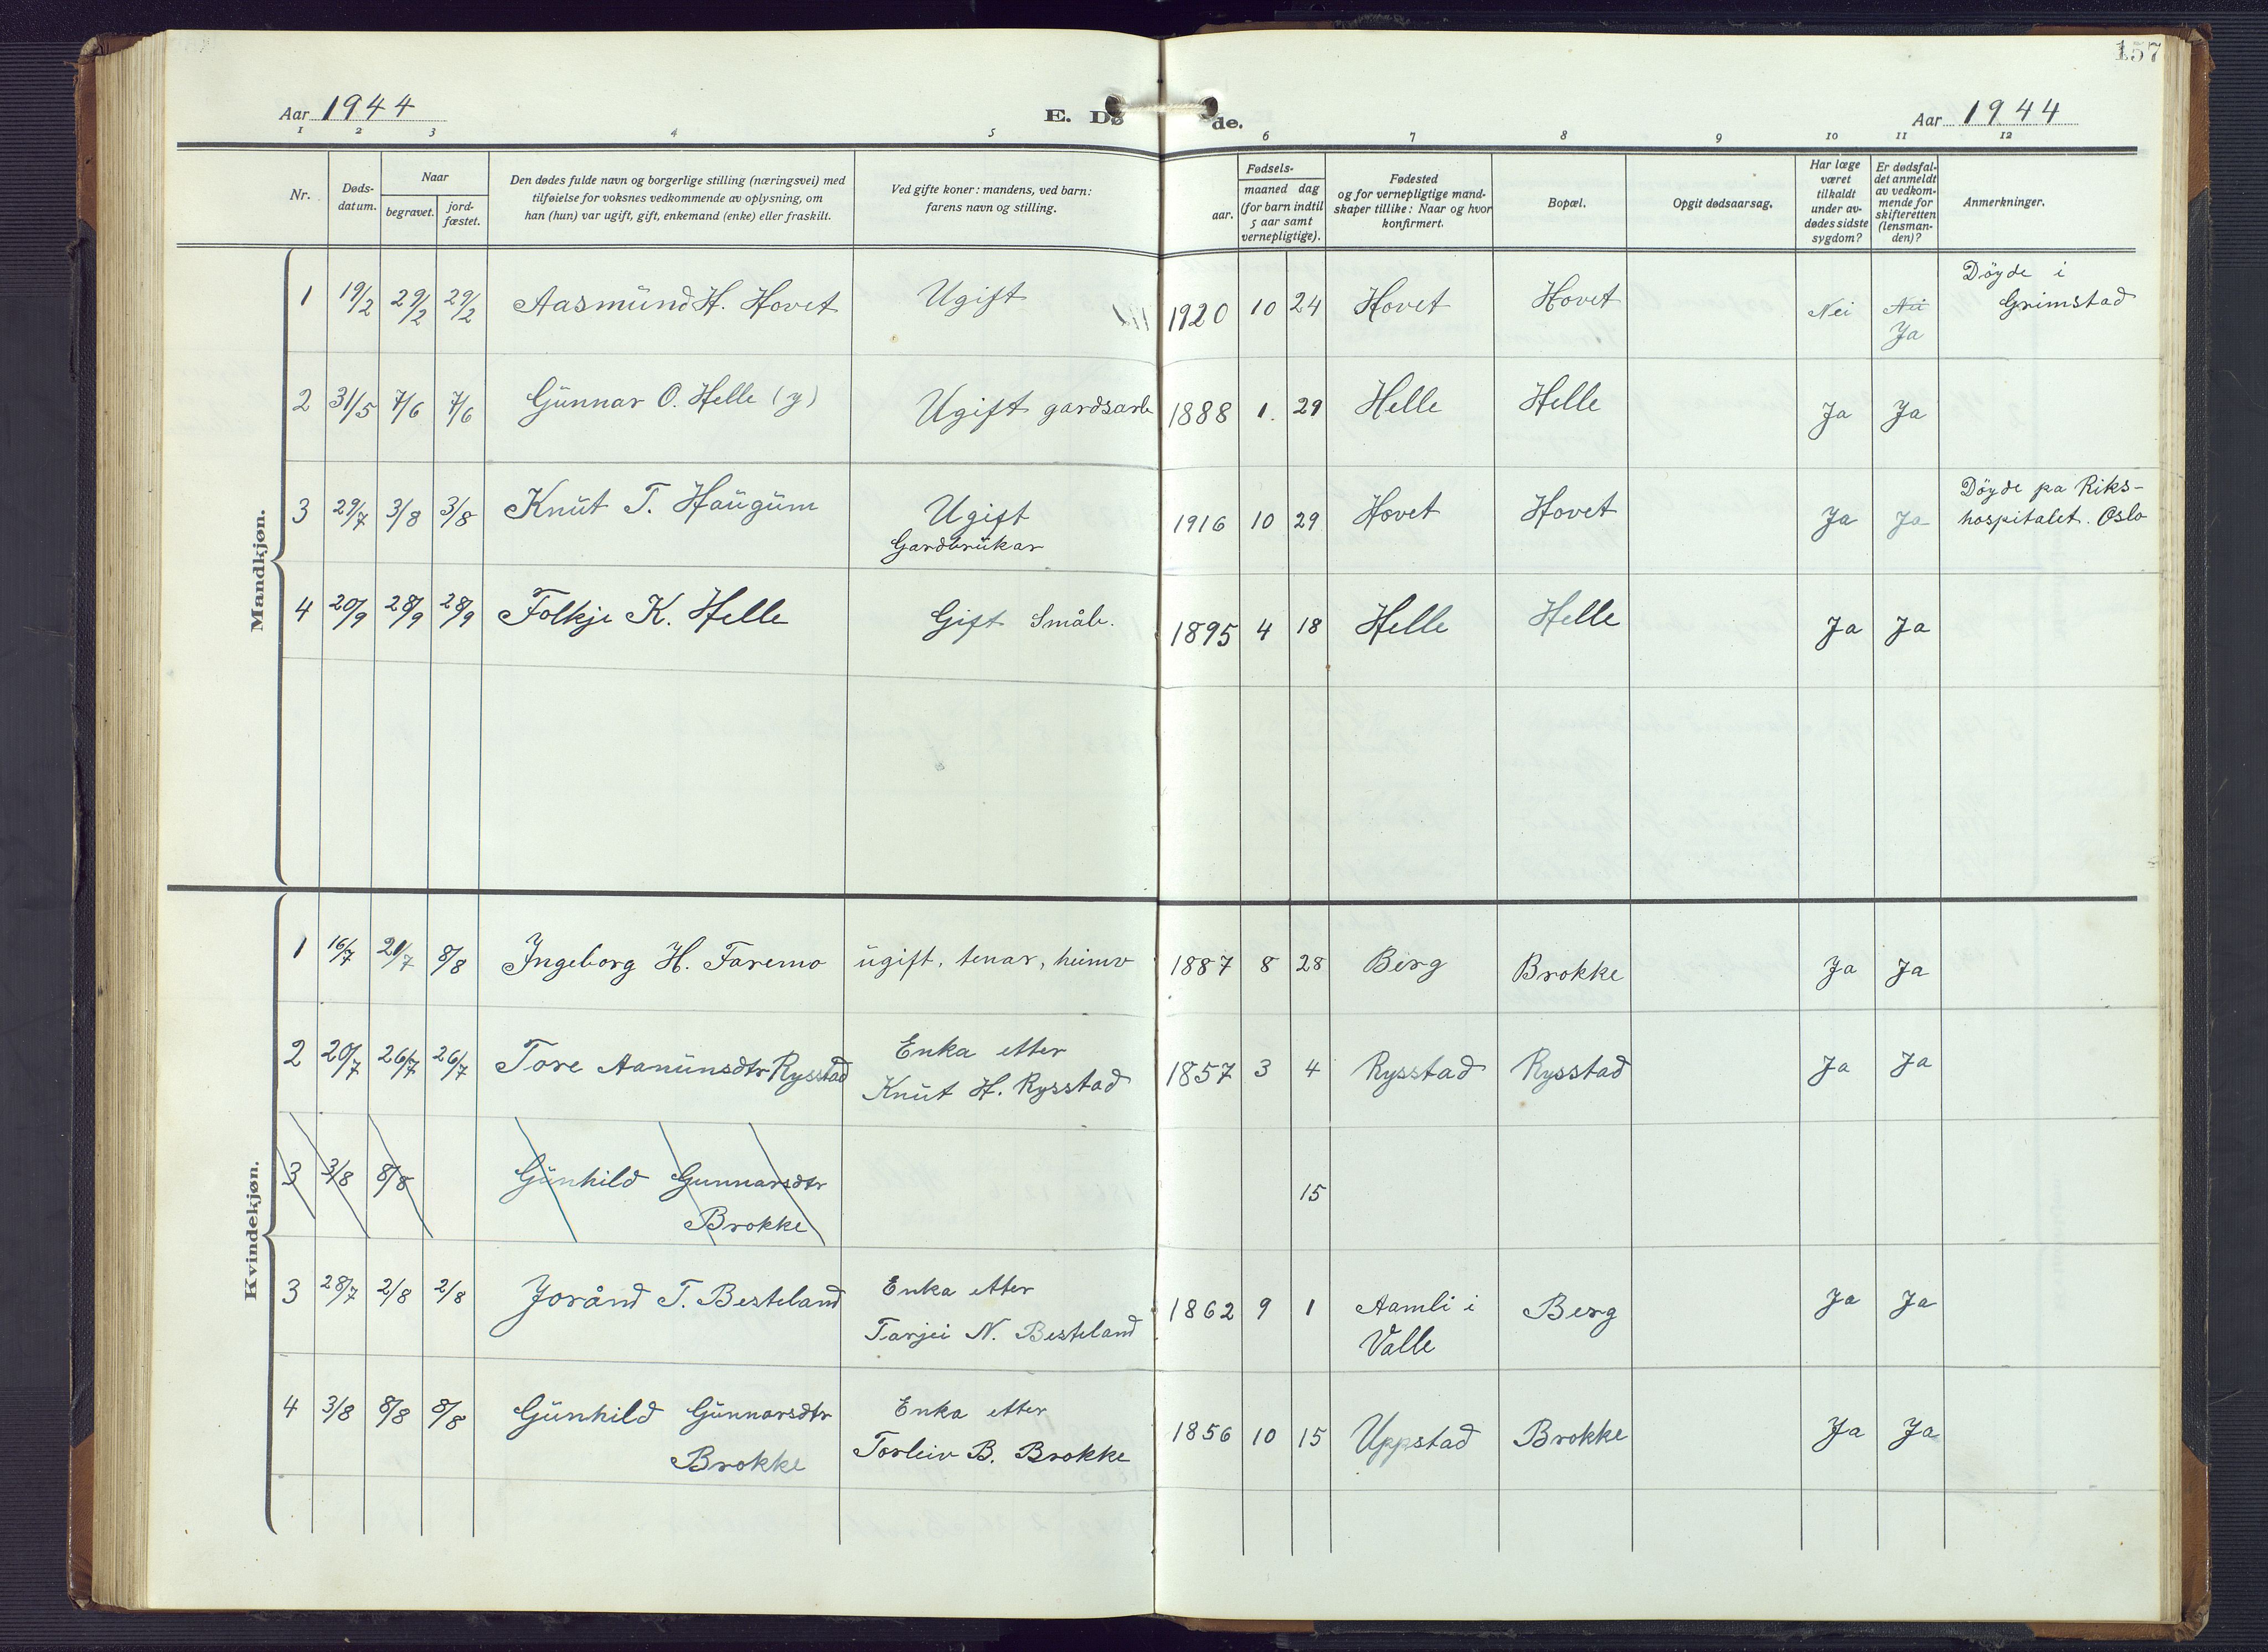 157
Aar 1944
E. Dø de.
Aar 1944
1 2 3 4 5 6 7 8 9 10 11 12
Nr.
Døds-
datum.
Naar
begravet.
jord-
fæstet.
Den dødes fulde navn og borgerlige stilling (næringsvei) med
tilføielse for voksnes vedkommende av oplysning, om
han (hun) var ugift, gift, enkemand (enke) eller fraskilt.
Ved gifte koner: mandens, ved barn:
farens navn og stilling.
Fødsels-
aar.
maaned dag
(for barn indtil
5 aar samt
vernepligtige).
Fødested
og for vernepligtige mand-
skaper tillike: Naar og hvor
konfirmert.
Bopæl.
Opgit dødsaarsag.
Har læge
været
tilkaldt
under av-
dødes sidste
sygdom?
Er dødsfal-
det anmeldt
av vedkom-
mende for
skifteretten
(lensman-
den)?
Anmerkninger.
Mandkjøn.
1 19/2 29/2 29/2 Aasmund H. Hovet Ugift 1920 10 24 Hovet Hovet Nei Nei Døyde i
Ja Grimstad
2 31/5 7/6 7/6 Gunnar O. Helle (y) Ugift gardsarb 1888 1. 29 Helle Helle Ja Ja
3 29/7 3/8 3/8 Knut T. Haugum Ugift 1916 10 29 Hovet Hovet Ja Ja Døyde pa Riks-
Gardbrukar hospitalet. Oslo
4 20/9 28/9 28/9 Folkje K. Helle Gift Småb. 1895 4 18 Helle Helle Ja Ja
Kvindekjøn.
1 16/7 21/7 8/8 Ingeborg H. Faremo ugift, tenar, heimv 1887 8 28 Berg Brokke Ja Ja
2 20/7 26/7 26/7 Tore Aanunsdtr Rysstad Enka etter
Knut H. Rysstad 1857 3 4 Rysstad Rysstad Ja Ja
3 3/8 8/8 Gunhild Gunnarsdtr
Brokke 15
3 28/7 2/8 2/8 Jorånd T. Besteland Enka etter
Tarjei N. Besteland 1862 9 1 Aamli i
Valle Berg Ja Ja
4 3/8 8/8 8/8 Gunhild Gunnarsdtr
Brokke Enka etter
Torleiv B. Brokke 1856 10 15 Uppstad Brokke Ja Ja